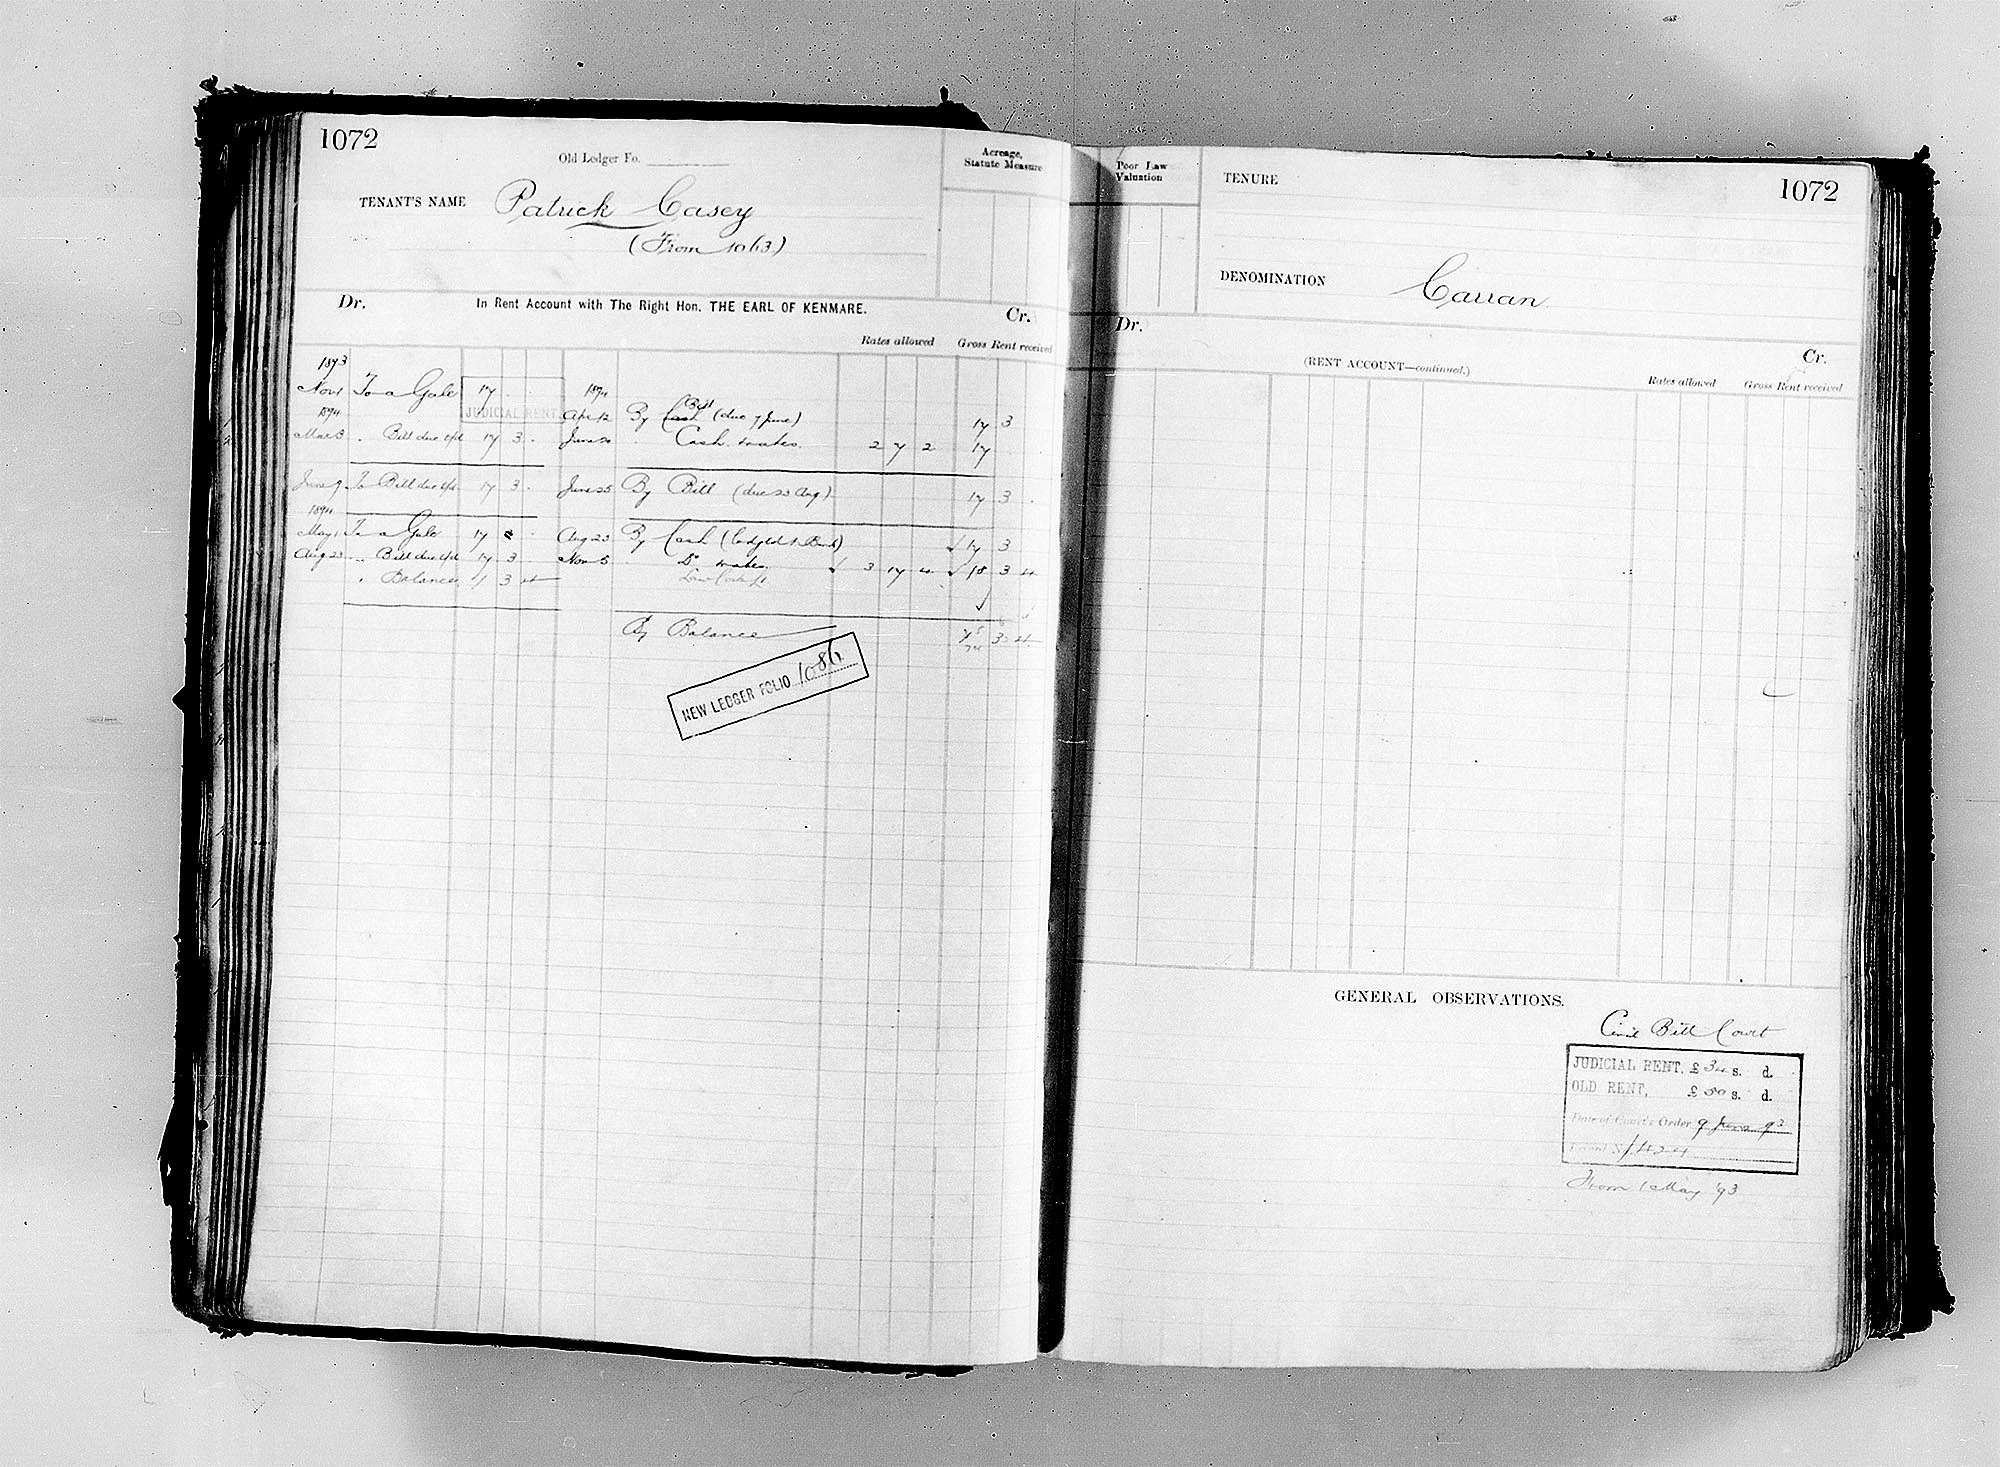 1072
Old Ledger Fo.
TENANT'S NAME Patrick Casey
(From 1063)
Acreage, Statute Measure
Dr. In Rent Account with The Right Hon. THE EARL OF KENMARE. Cr.
Rates allowed Gross Rent received
1893
Nov 1 To a Gale 17 . .
JUDICIAL RENT
1894
Apr 12 By Cash Bill (due 7 June) 17 3
1894
Mar 3 " Bill due 17 3 .
June 20 Cash & rates 2 7 2 17
June 9 To Bill due 17 3 .
June 25 By Bill (due 23 Aug) 17 3 .
1894
May 1 To a Gale 17 . .
Aug 23 By Cash (lodged to Bank) 17 3
Aug 23 " Bill due 17 3
Nov 5 Do & rates 3 17 4 18 3 4
" Balance 3 4
Law Costs
By Balance 3 4
NEW LEDGER FOLIO 1086
Poor Law Valuation
TENURE
1072
DENOMINATION Carran
Dr. (RENT ACCOUNT—continued.) Cr.
Rates allowed Gross Rent received
GENERAL OBSERVATIONS.
Civil Bill Court
JUDICIAL RENT, £ 34 s. d.
OLD RENT, £ 50 s. d.
Date of Court's Order 9 June 93
Record No 1424
From 1 May '93